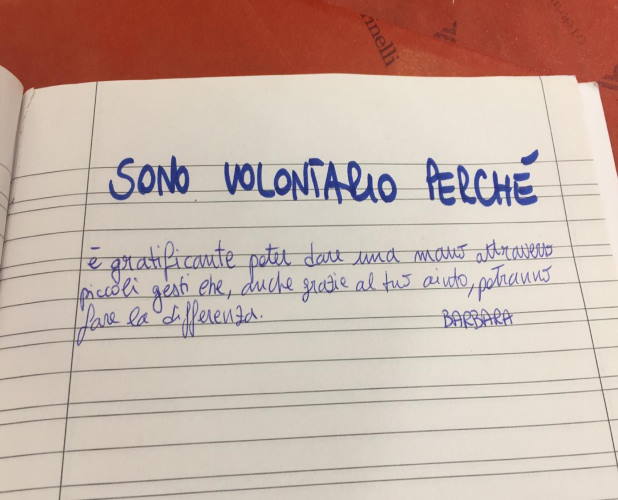 inelli
SONO VOLONTARIO PERCHÉ
è gratificante poter dare una mano attraverso
piccoli gesti che, anche grazie al tuo aiuto, potranno
fare la differenza.
BARBARA